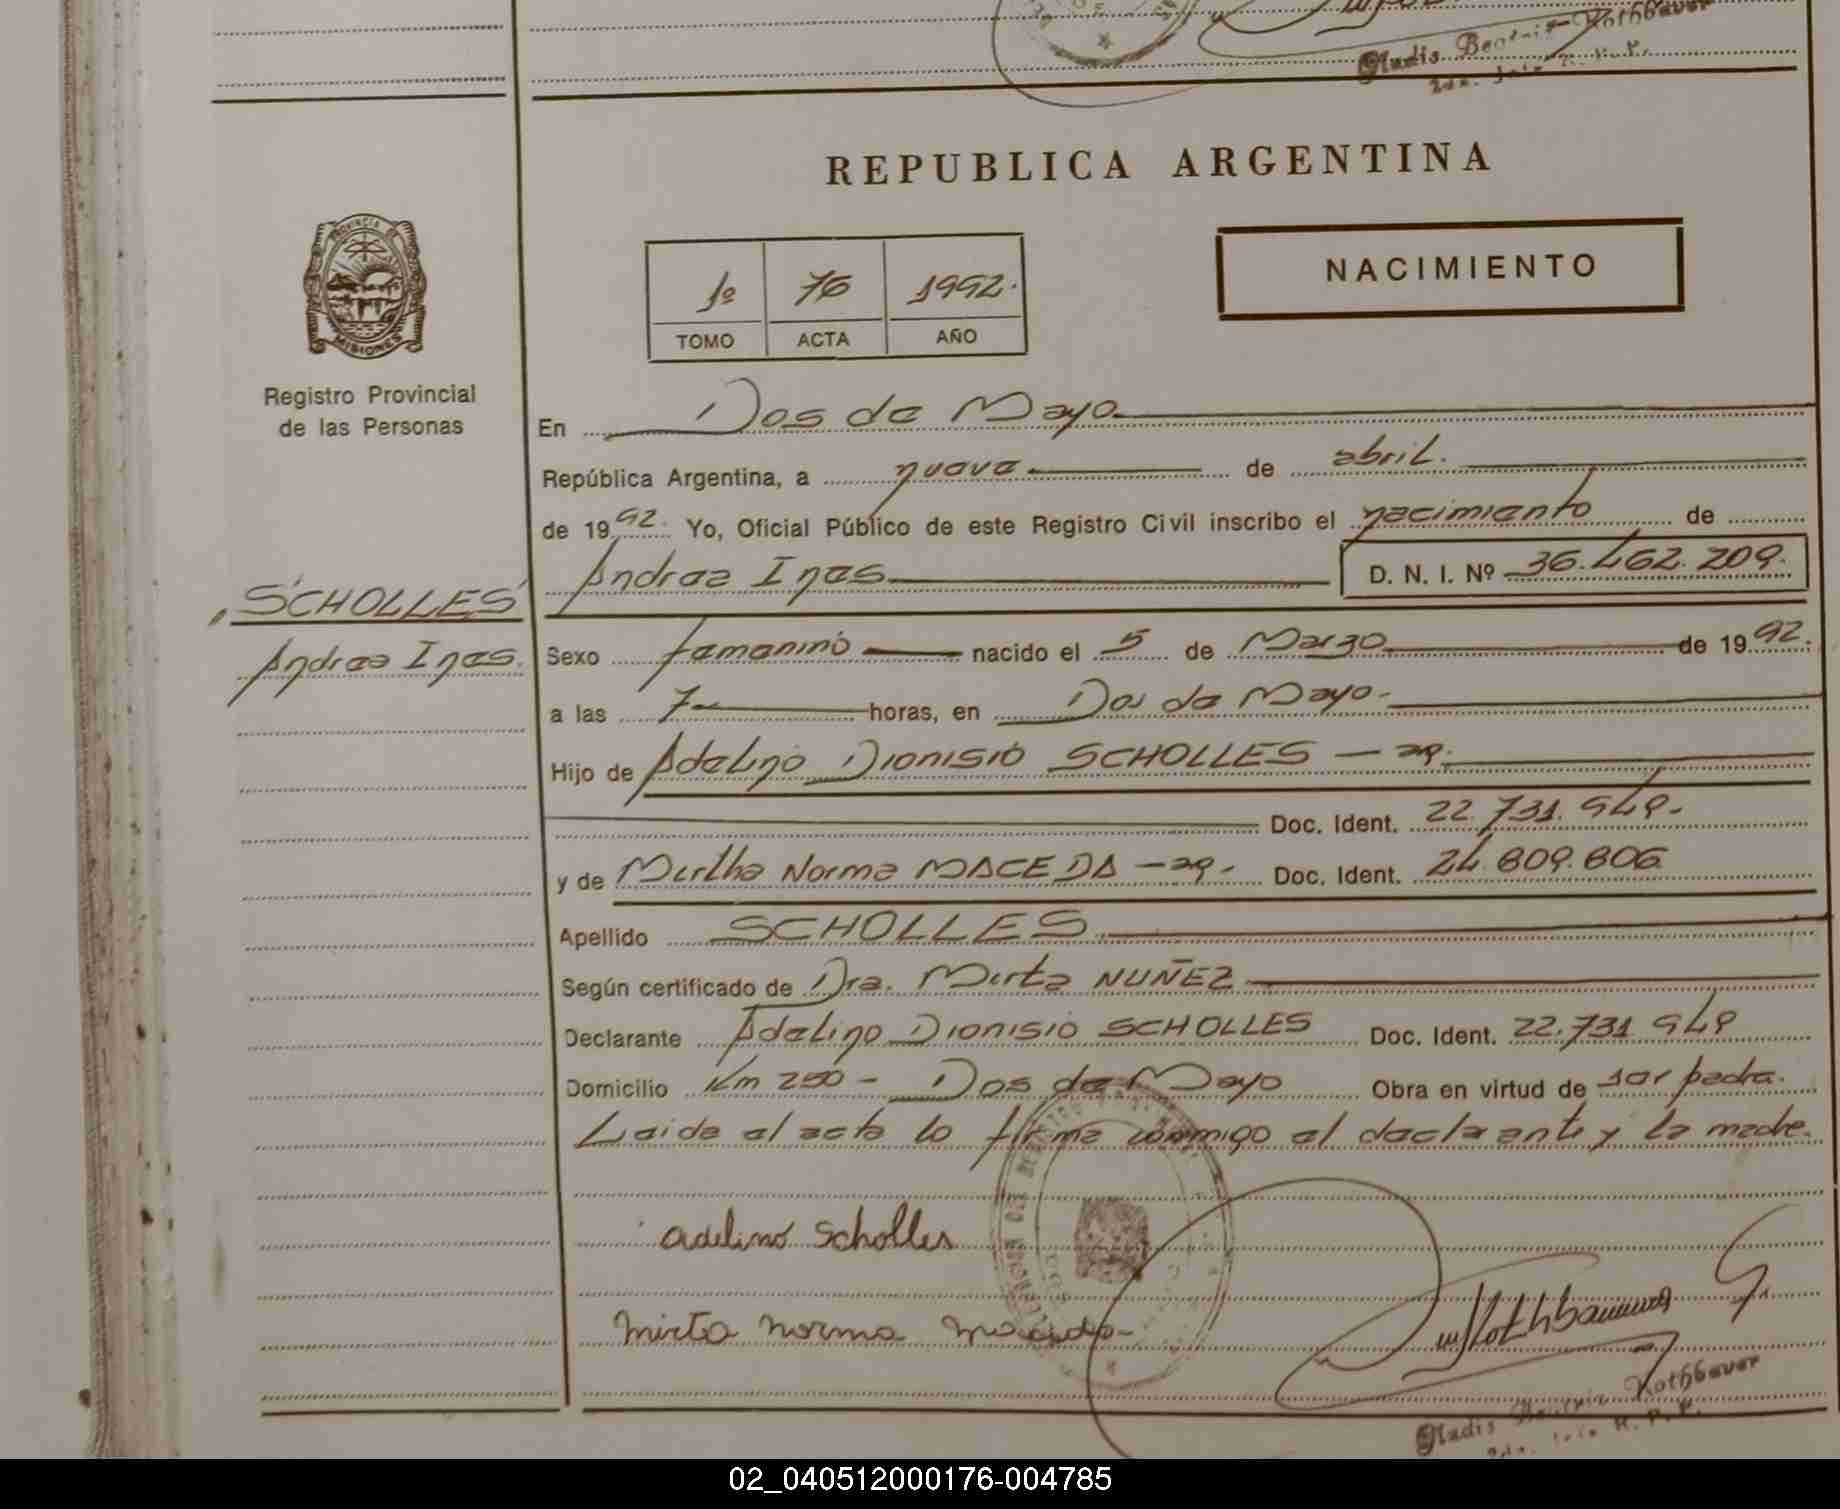 Gladis Beatriz Rothbauer
REPUBLICA ARGENTINA
PROVINCIA DE
MISIONES
Registro Provincial
de las Personas
NACIMIENTO
1º 76 1992.
TOMO ACTA AÑO
En Dos de Mayo
República Argentina, a nueve de abril.
de 1992. Yo, Oficial Público de este Registro Civil inscribo el nacimiento de
Andrea Ines D. N. I. Nº 36.462.209.
SCHOLLES
Andrea Ines.
Sexo femenino nacido el 5 de Marzo de 1992.
a las 7 horas, en Dos de Mayo.
Hijo de Adelino Dionisio SCHOLLES - ar.
Doc. Ident. 22.731.949.
y de Mirtha Norma MACEDA - ar. Doc. Ident. 24.809.806
Apellido SCHOLLES
Según certificado de Dra. Mirta NUÑEZ
Declarante Adelino Dionisio SCHOLLES Doc. Ident. 22.731 949
Domicilio Km 250 - Dos de Mayo Obra en virtud de ser padre.
Leida el acta lo firma conmigo el declarante y la madre.
adelino scholles
mirta norma maceda
Gladis Beatriz Rothbauer
02_040512000176-004785